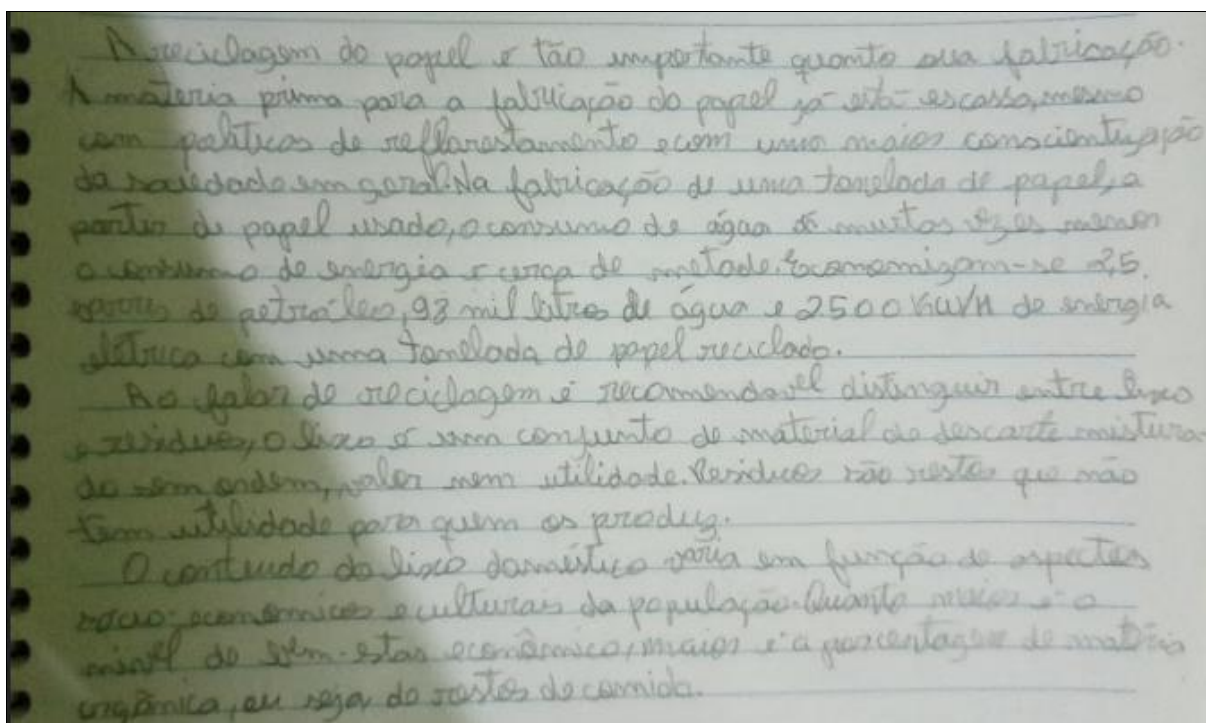 A reciclagem do papel é tão importante quanto sua fabricação.
A materia prima para a fabricação do papel já está escassa, mesmo
com politicas de reflorestamento e com uma maior conscientização
da sociedade em geral. Na fabricação de uma tonelada de papel, a
partir de papel usado, o consumo de água é muitas vezes menor
o consumo de energia é cerca de metade. Economizam-se 2,5
barris de petróleo, 98 mil litros de água e 2500 Kw/h de energia
elétrica com uma tonelada de papel reciclado.
Ao falar de reciclagem é recomendavel distinguir entre lixo
e residuos, o lixo é um conjunto de material de descarte mistura-
do sem ordem, valor nem utilidade. Residuos são restos que não
tem utilidade para quem os produz.
O conteudo do lixo doméstico varia em função de aspectos
socio-econômicos e culturais da população. Quanto maior é o
nivel de bem-estar econômico, maior é a porcentagem de matéria
orgânica, ou seja de restos de comida.